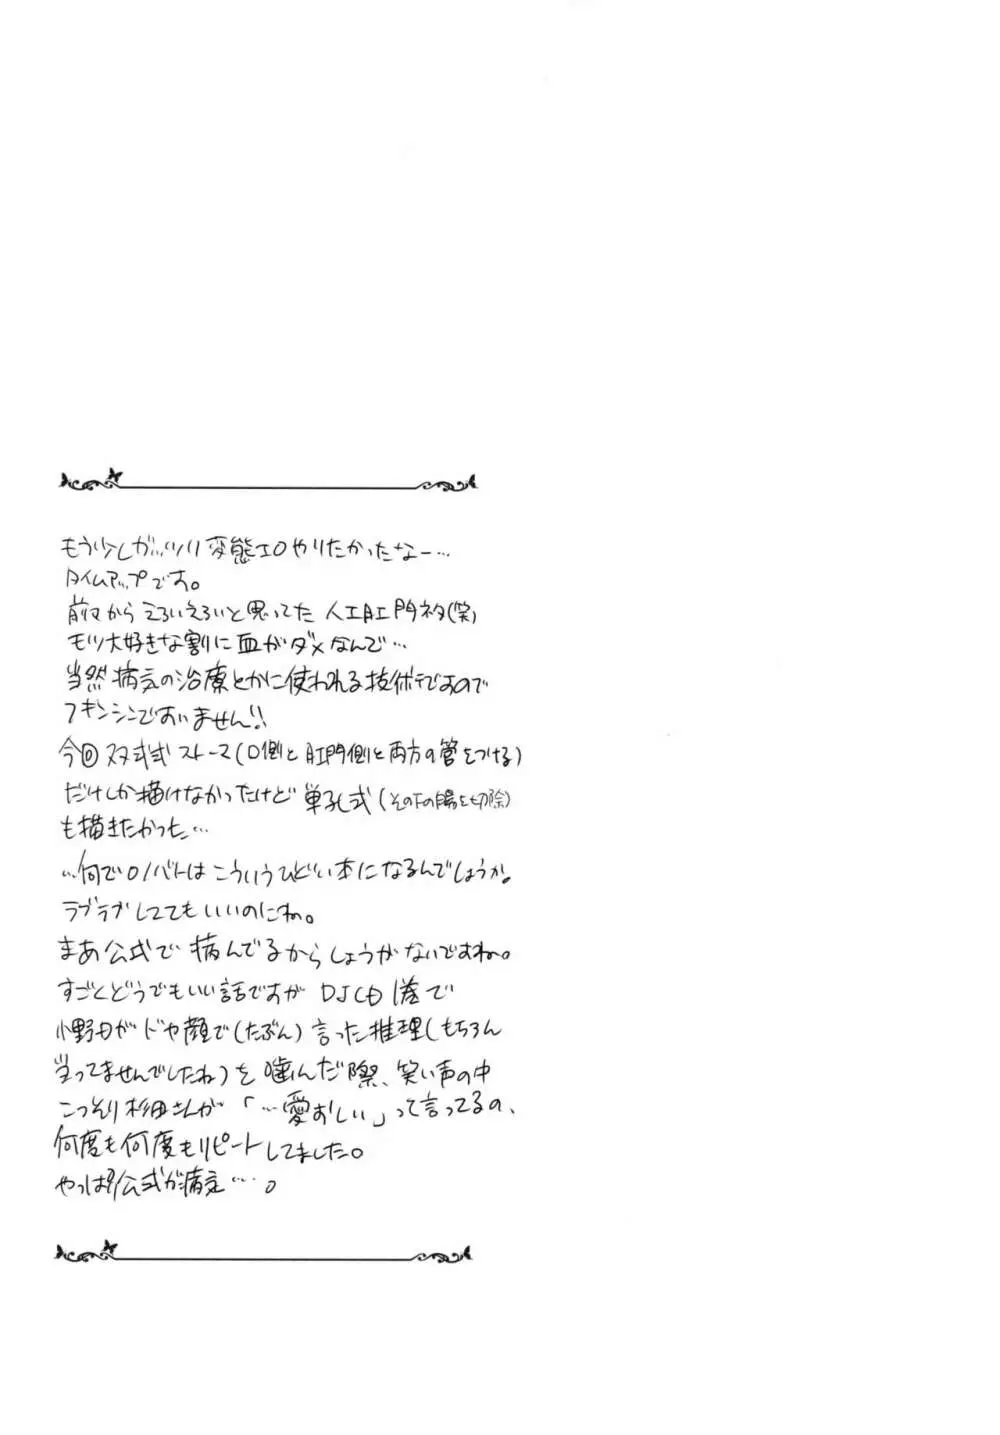 もう少しガッツリ変態エロやりたかったなー…
タイムアップです。
前々からえろいえろいと思ってた 人工肛門ネタ(笑)
モツ大好きな割に血がダメなんで…
当然病気の治療とかに使われる技術ですので
フキンシンですいません!!
今回双孔式ストーマ(口側と肛門側と両方の管をつける)
だけしか描けなかったけど単孔式(その下の腸を切除)
も描きたかった…
…何でロノバトはこういうひどい本になるんでしょうか。
ラブラブしててもいいのにね。
まあ公式で病んでるからしょうがないですね。
すごくどうでもいい話ですが DJCD1巻で
小野田がドヤ顔で(たぶん)言った推理(もちろん
当ってませんでしたね)を噛んだ際、笑い声の中
こっそり杉田さんが「…愛おしい」って言ってるの、
何度も何度もリピートしてました。
やっぱ公式が病…。